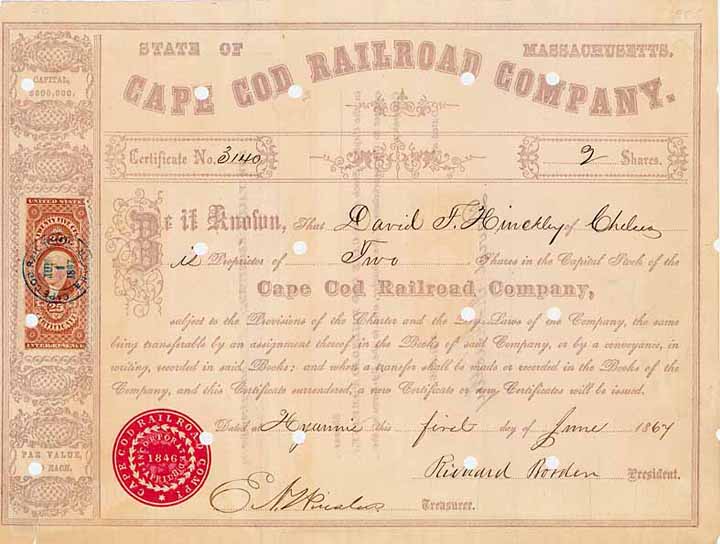 STATE OF MASSACHUSETTS.
CAPE COD RAILROAD COMPANY.
CAPITAL,
Certificate No. 3140 2 Shares.
UNITED STATES
INTER. REVENUE
25
CERTIFICATE
Be it Known, That David F. Hinckley of Chelsea
is Proprietor of Two Shares in the Capital Stock of the
Cape Cod Railroad Company,
subject to the Provisions of the Charter and the Bye-Laws of the Company, the same
being transferable by an assignment thereof in the Books of said Company, or by a conveyance, in
writing, recorded in said Books: and when a transfer shall be made or recorded in the Books of the
Company, and this Certificate surrendered, a new Certificate or new Certificates will be issued.
Dated at Hyannis this first day of June 1864
Richard Borden President.
Treasurer.
CAPE COD RAILROAD COMPY
INCORPORATED
1846
PAR VALUE,
EACH.